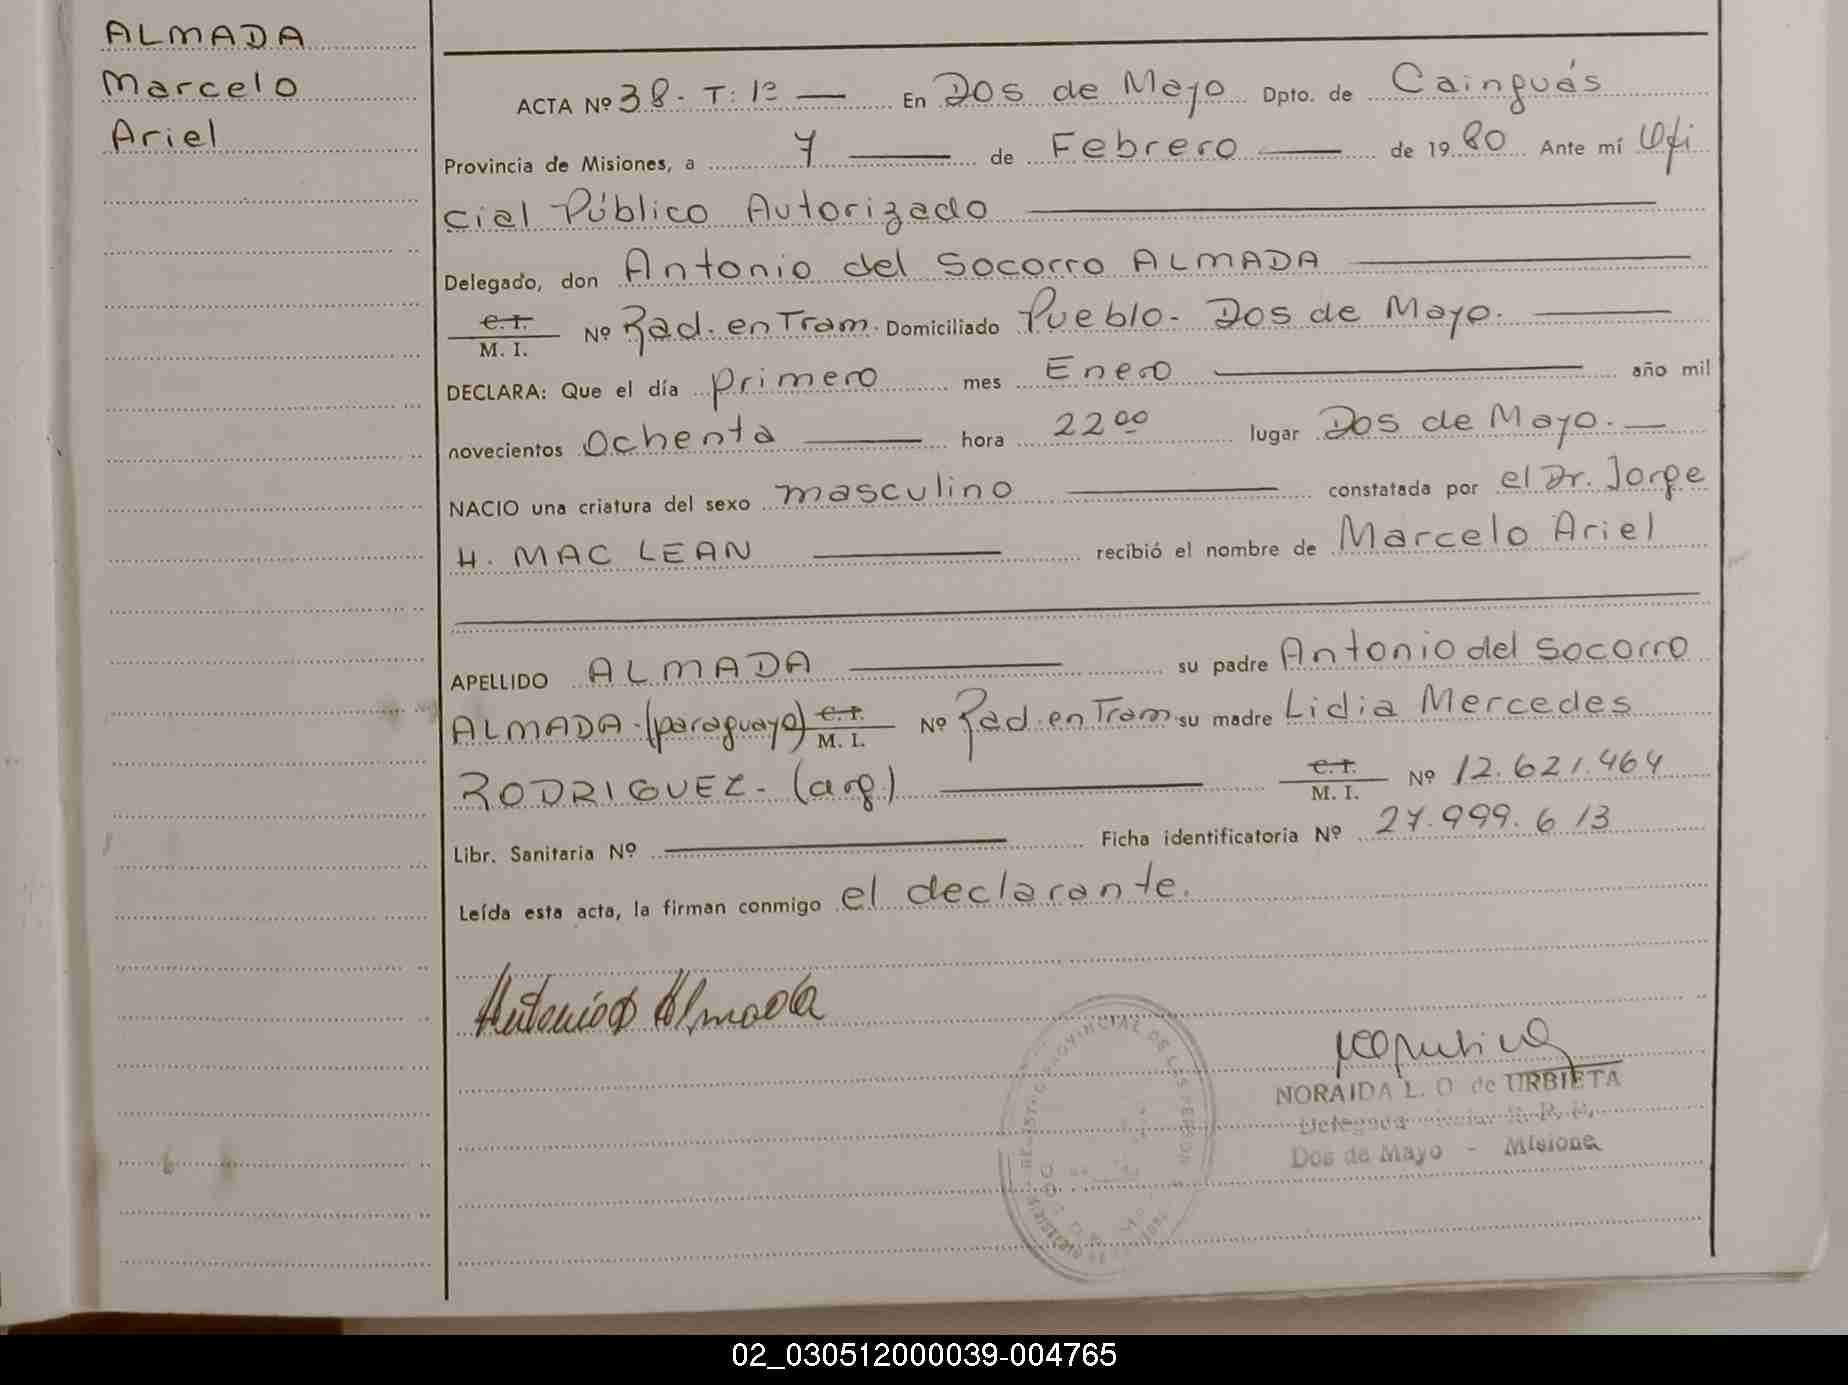 ALMADA
Marcelo
Ariel
ACTA Nº 38 - T: 1º — En Dos de Mayo Dpto. de Cainguás
Provincia de Misiones, a 7 — de Febrero — de 1980 Ante mí Ofi
cial Público Autorizado —
Delegado, don Antonio del Socorro ALMADA —
C.I. M. I. Nº Rad. en Tram. Domiciliado Pueblo - Dos de Mayo. —
DECLARA: Que el día primero mes Enero — año mil
novecientos Ochenta — hora 22 00 lugar Dos de Mayo. —
NACIO una criatura del sexo masculino — constatada por el Dr. Jorge
H. MAC LEAN — recibió el nombre de Marcelo Ariel
APELLIDO ALMADA — su padre Antonio del Socorro
ALMADA - (paraguayo) C.I. M. I. Nº Rad. en Tram. su madre Lidia Mercedes
RODRIGUEZ - (arg.) — C.I. M. I. Nº 12.621.464
Libr. Sanitaria Nº — Ficha identificatoria Nº 27.999.613
Leída esta acta, la firman conmigo el declarante.
Antonio Almada
PROVINCIAL DE LAS PERSON
NORAIDA L. O. de URBIETA
Delegada
Dos de Mayo - Misione
02_030512000039-004765